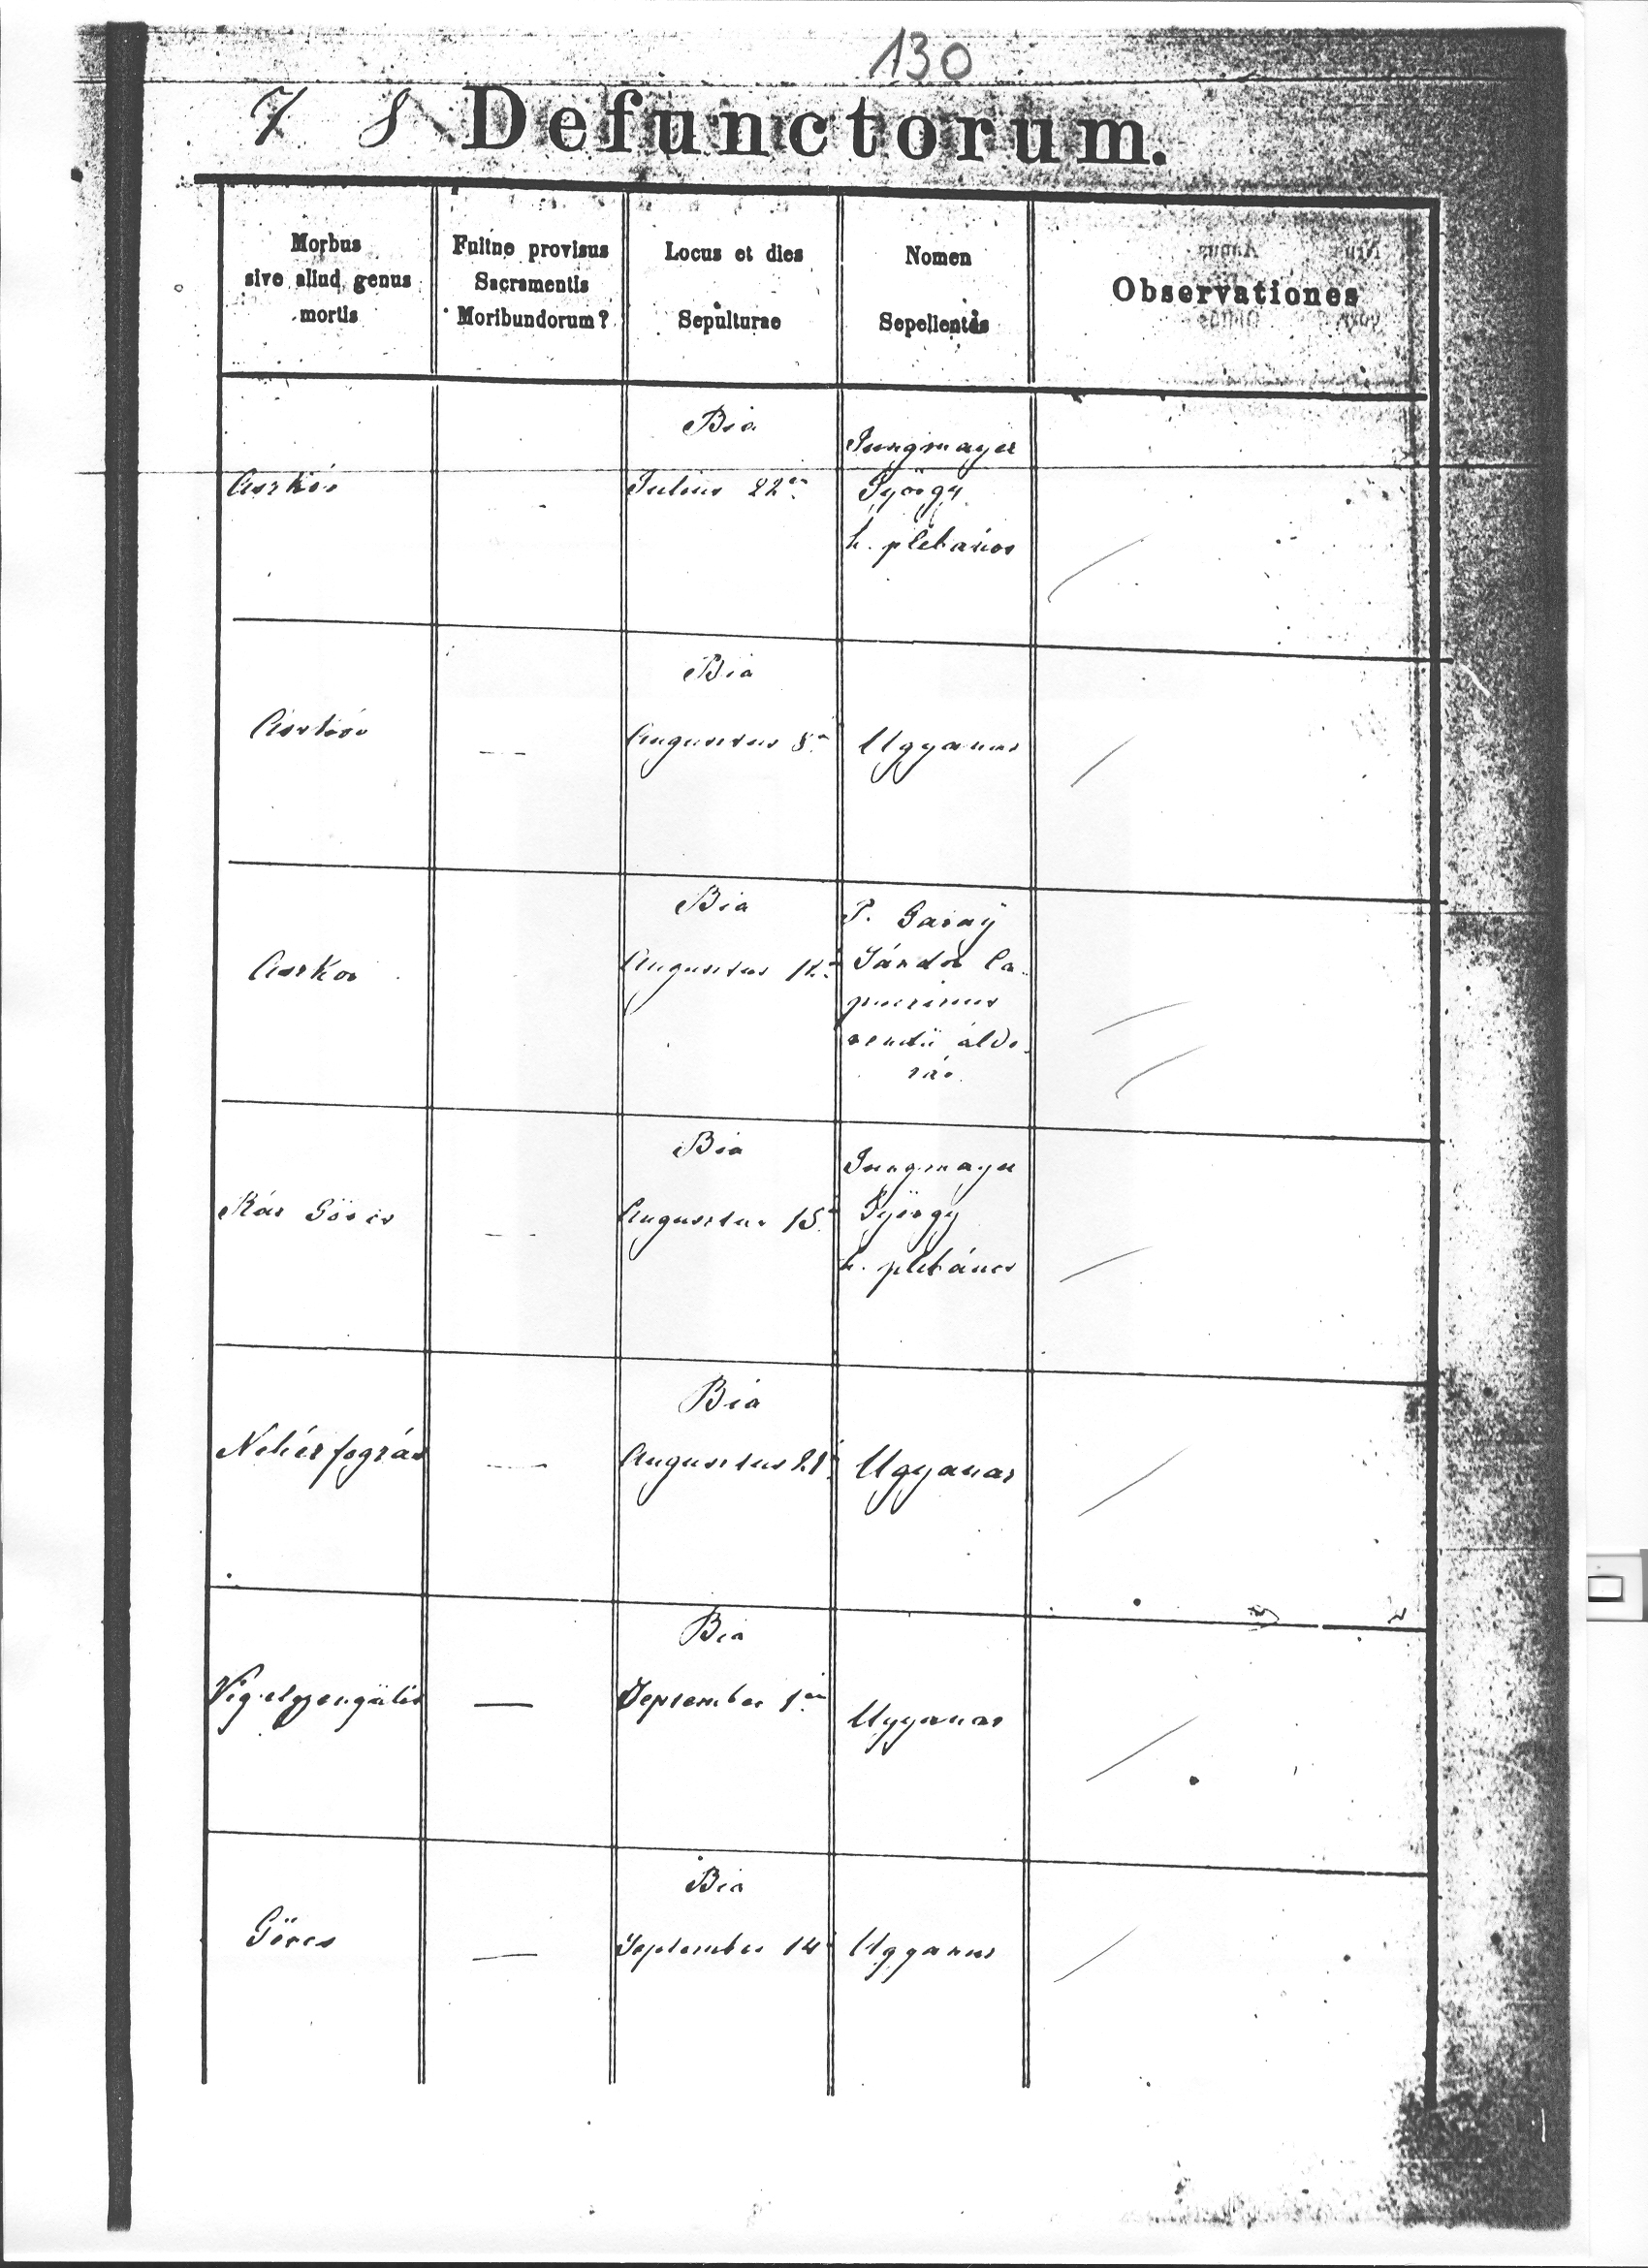 130
7 8 Defunctorum.
Morbus
sive aliud genus
mortis
Fuitne provisus
Sacramentis
Moribundorum?
Locus et dies
Sepulturae
Nomen
Sepelientis
Observationes
Bia
Julius 22én
Jungmayer
György
h. plébános
Bia
Augusztus 8án
Ugyanaz
Aszkor
Bia
Augusztus 12
P. Garay
Sándor Ca
pucinus
rendü áldo
zár
Rár Görcs
Bia
Augusztus 15
Jungmayer
György
h. plébános
Nehézfogzás
Bia
Augusztus 21
Ugyanaz
Végelgyengülés
Bia
September 1én
Ugyanaz
Görcs
Bia
September 14
Ugyanaz